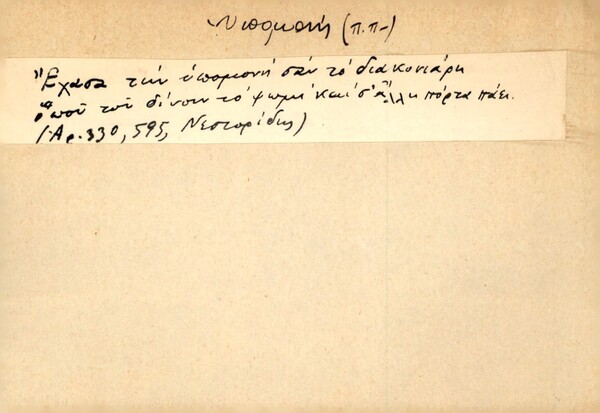 ὑπομονή (π.π.)
Ἔχασα τὴν ὑπομονή σάν τό διακονιάρη
ὅπου τοῦ δίνουν τό ψωμί καί σ' ἄλλη πόρτα πάει.
(Ἀρ. 330, 595, Νεστορίδης)